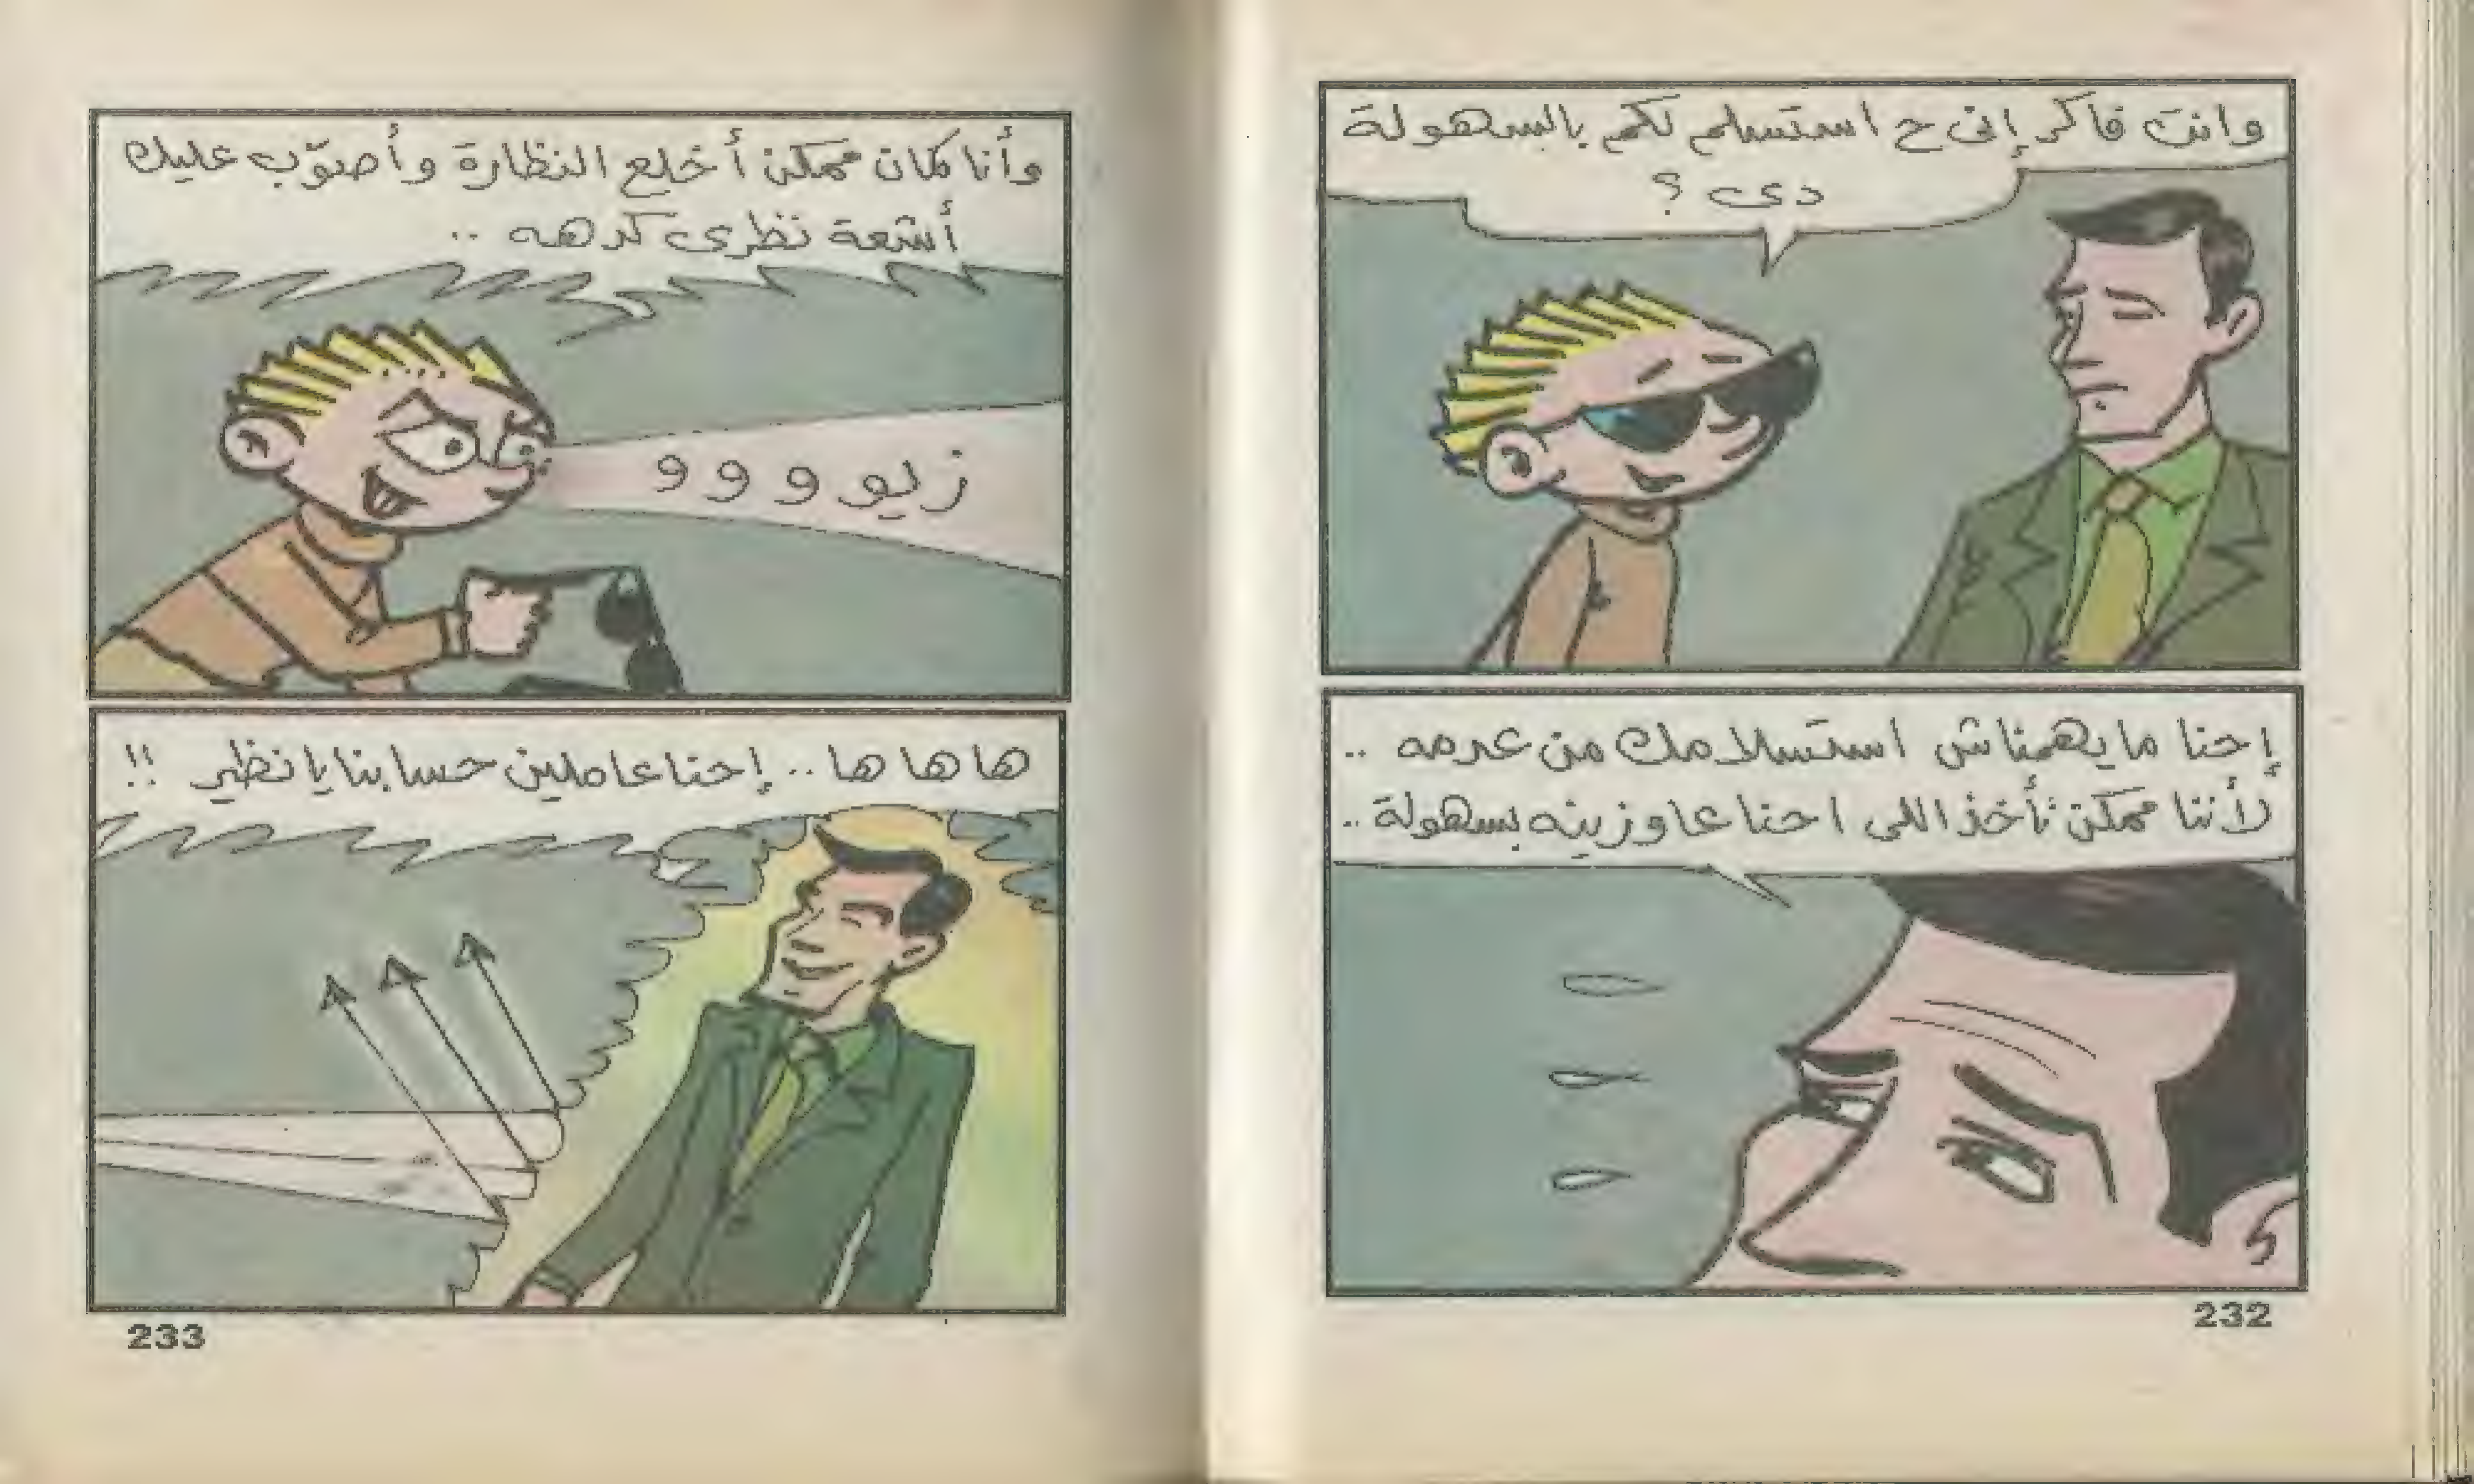 وانت فاكر إنى ح استسلم لكم بالسهولة
دى ؟
إحنا ما يهمناش استسلامك من عدمه ..
لأننا ممكن نأخذ اللى احنا عاوزينه بسهولة ..
232
وأنا كمان ممكن أخلع النظارة وأصوّب عليك
أشعة نظرى كدهه ..
زيوووو
ها ها ها .. إحنا عاملين حسابنا يا نظير !!
233